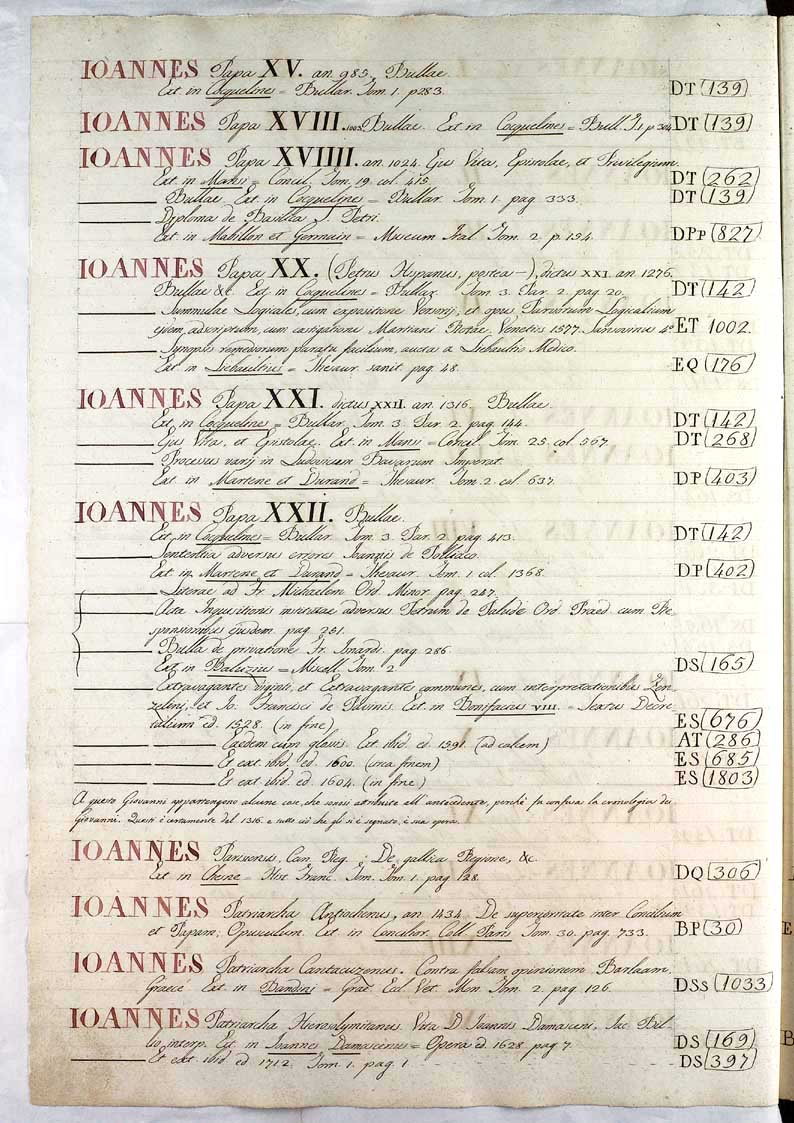 IOANNES Papa XV. an. 985. Bullae
Ext in Cocqueline = Bullar. Tom. 1. p 283. DT 139
IOANNES Papa XVIII. 1003. Bullae. Ext in Cocquelines = Bull. T. 1 p 304 DT 139
IOANNES Papa XVIIII. an. 1024. Ejus Vita, Epistolae, et Privilegium.
Ext. in Mansi = Concil. Tom. 19. col. 415. DT 262
Bullae. Ext in Cocquelines = Bullar. Tom 1. pag. 333. DT 139
Diploma de Basilica S. Petri.
Ext. in Mabillon et Germain = Museum Ital. Tom. 2. p. 154. DPp 827
IOANNES Papa XX. (Petrus Hispanus, postea —), dictus XXI. an. 1276.
Bullae &c. Ext in Cocquelines = Bullar. Tom. 3. Par. 2. pag. 20. DT 142
Summulae Logicales, cum expositione Versorij, et opus Parvorum Logicalium
ejdem adscriptum, cum castigatione Martiani Rotae. Venetiis 1577. Sansovinus 4º ET 1002.
Synopsis remediorum paratu facilium, aucta a Liebaultio Medico.
Ext. in Liebaultius = Thesaur. sanit. pag. 48. EQ 176
IOANNES Papa XXI. dictus XXII. an. 1316. Bullae.
Ext. in Cocquelines = Bullar. Tom. 3. Par. 2. pag. 144. DT 142
Ejus Vita, et Epistolae. Ext. in Mansi = Concil. Tom. 25. col. 567. DT 268
Processus varij in Ludovicum Bavarum Imperat.
Ext. in Martene et Durand = Thesaur. Tom. 2. col. 637. DP 403
IOANNES Papa XXII. Bullae.
Ext. in Cocquelines = Bullar. Tom. 3. Par. 2. pag. 413. DT 142
Sententia adversus errores Joannis de Polliaco.
Ext. in Martene et Durand = Thesaur. Tom. 1. col. 1368. DP 402
Literae ad Fr. Michaelem Ord. Minor. pag. 247.
Acta Inquisitionis institutae adversus Petrum de Palude Ord. Praed. cum Re-
sponsionibus ejusdem. pag. 251.
Bulla de privatione Fr. pag. 286.
Ext. in Baluzius = Miscell. Tom. 2. DS 165
Extravagantes viginti, et Extravagantes communes, cum interpretationibus Zen-
zelini, et Jo. Francisci de Pavinis. Ext. in Bonifacius VIII. = Sextus Decre-
talium ed. 1528. (in fine) ES 676
Eaedem cum glossis. Ext. ibid. ed. 1591. (ad calcem) AT 286
Et ext. ibid. ed. 1600. (circa finem) ES 685
Et ext. ibid. ed. 1604. (in fine) ES 1803
A questo Giovanni appartengono alcune cose, che sonosi attribuite all' antecedente, perchè fu confusa la cronologia de'
Giovanni. Questi è certamente del 1316. e tutto ciò che gli si è segnato, è sua opera.
IOANNES Parisiensis, Can. Reg. De gallica Regione, &c.
Ext. in Chesne = Hist. Franc. Tom. 1. pag. 128. DQ 306
IOANNES Patriarcha Antiochenus, an. 1434. De superioritate inter Concilium
et Papam, Opusculum. Ext. in Concilior. Coll. Paris. Tom. 30. pag. 733. BP 30
IOANNES Patriarcha Cantacuzenus. Contra falsam opinionem Barlaam.
Graecè. Ext. in Bandini = Graec. Eccl. Vet. Mon. Tom. 2. pag. 126. DSs 1033
IOANNES Patriarcha Hierosolymitanus. Vita D. Joannis Damasceni, Jac. Bil-
lio interp. Ext. in Joannes Damascenus = Opera ed. 1628. pag. 7. DS 169
Et ext. ibid. ed. 1712. Tom. 1. pag. 1. DS 397